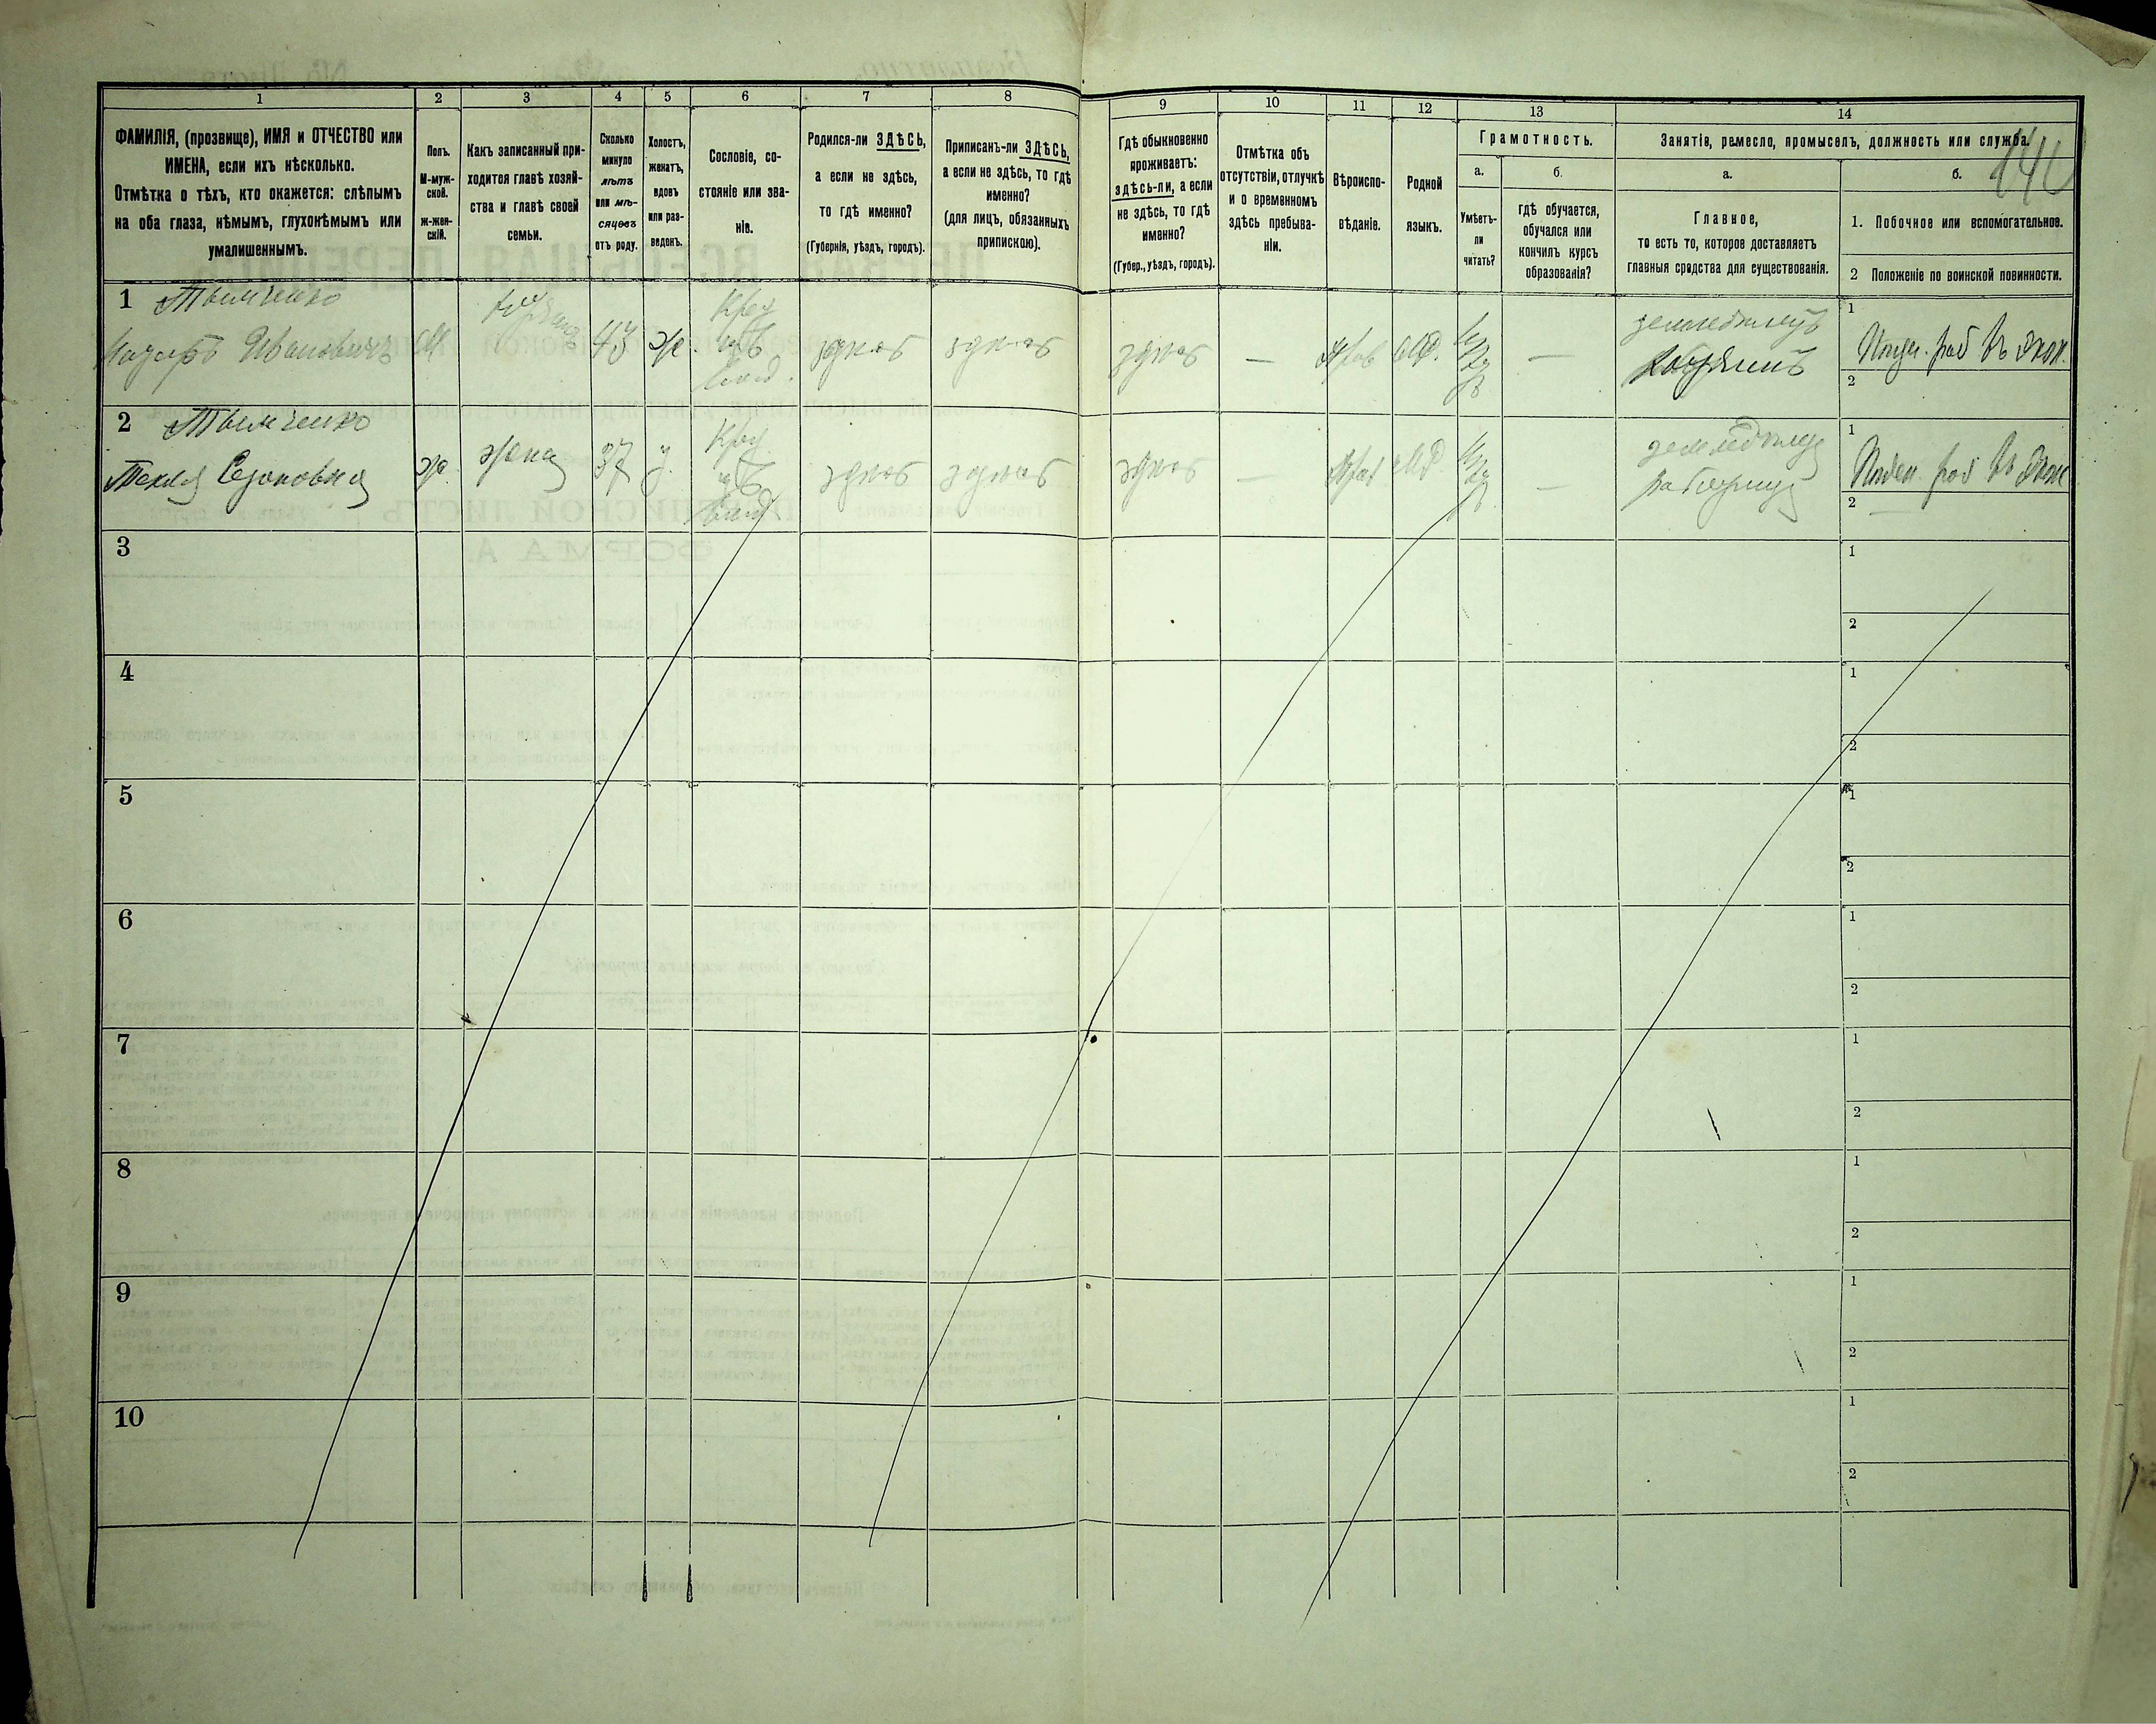 1 2 3 4 5 6 7 8 9 10 11 12 13 14
ФАМИЛІЯ, (прозвище), ИМЯ и ОТЧЕСТВО или
ИМЕНА, если ихъ нѣсколько.
Отмѣтка о тѣхъ, кто окажется: слѣпымъ
на оба глаза, нѣмымъ, глухонѣмымъ или
умалишеннымъ.
Полъ.
М-муж-
ской.
ж-жен-
скій.
Какъ записанный при-
ходится главѣ хозяй-
ства и главѣ своей
семьи.
Сколько
минуло
лѣтъ
или мѣ-
сяцевъ
отъ роду.
Холостъ,
женатъ,
вдовъ
или раз-
веденъ.
Сословіе, со-
стояніе или зва-
ніе.
Родился-ли ЗДѢСЬ,
а если не здѣсь,
то гдѣ именно?
(Губернія, уѣздъ, городъ).
Приписанъ-ли ЗДѢСЬ,
а если не здѣсь, то гдѣ
именно?
(для лицъ, обязанныхъ
припискою).
Гдѣ обыкновенно
проживаетъ:
здѣсь-ли, а если
не здѣсь, то гдѣ
именно?
(Губер., уѣздъ, городъ).
Отмѣтка объ
отсутствіи, отлучкѣ
и о временномъ
здѣсь пребыва-
ніи.
Вѣроиспо-
вѣданіе.
Родной
языкъ.
Грамотность.
а.
Умѣетъ-
ли
читать?
б.
гдѣ обучается,
обучался или
кончилъ курсъ
образованія?
Занятія, ремесло, промыселъ, должность или служба.
а.
Главное,
то есть то, которое доставляетъ
главныя средства для существованія.
б.
1. Побочное или вспомогательное.
2 Положеніе по воинской повинности.
1 Тымченко
Назаръ Ивановичъ М 43 ж. здѣсь здѣсь здѣсь — Прав —
1
2
2 Тымченко
Текля Сазоновна ж. жена 37 з. здѣсь здѣсь здѣсь — Прав —
1
2 —
3
1
2
4
1
2
5
1
2
6
1
2
7
1
2
8
1
2
9
1
2
10
1
2